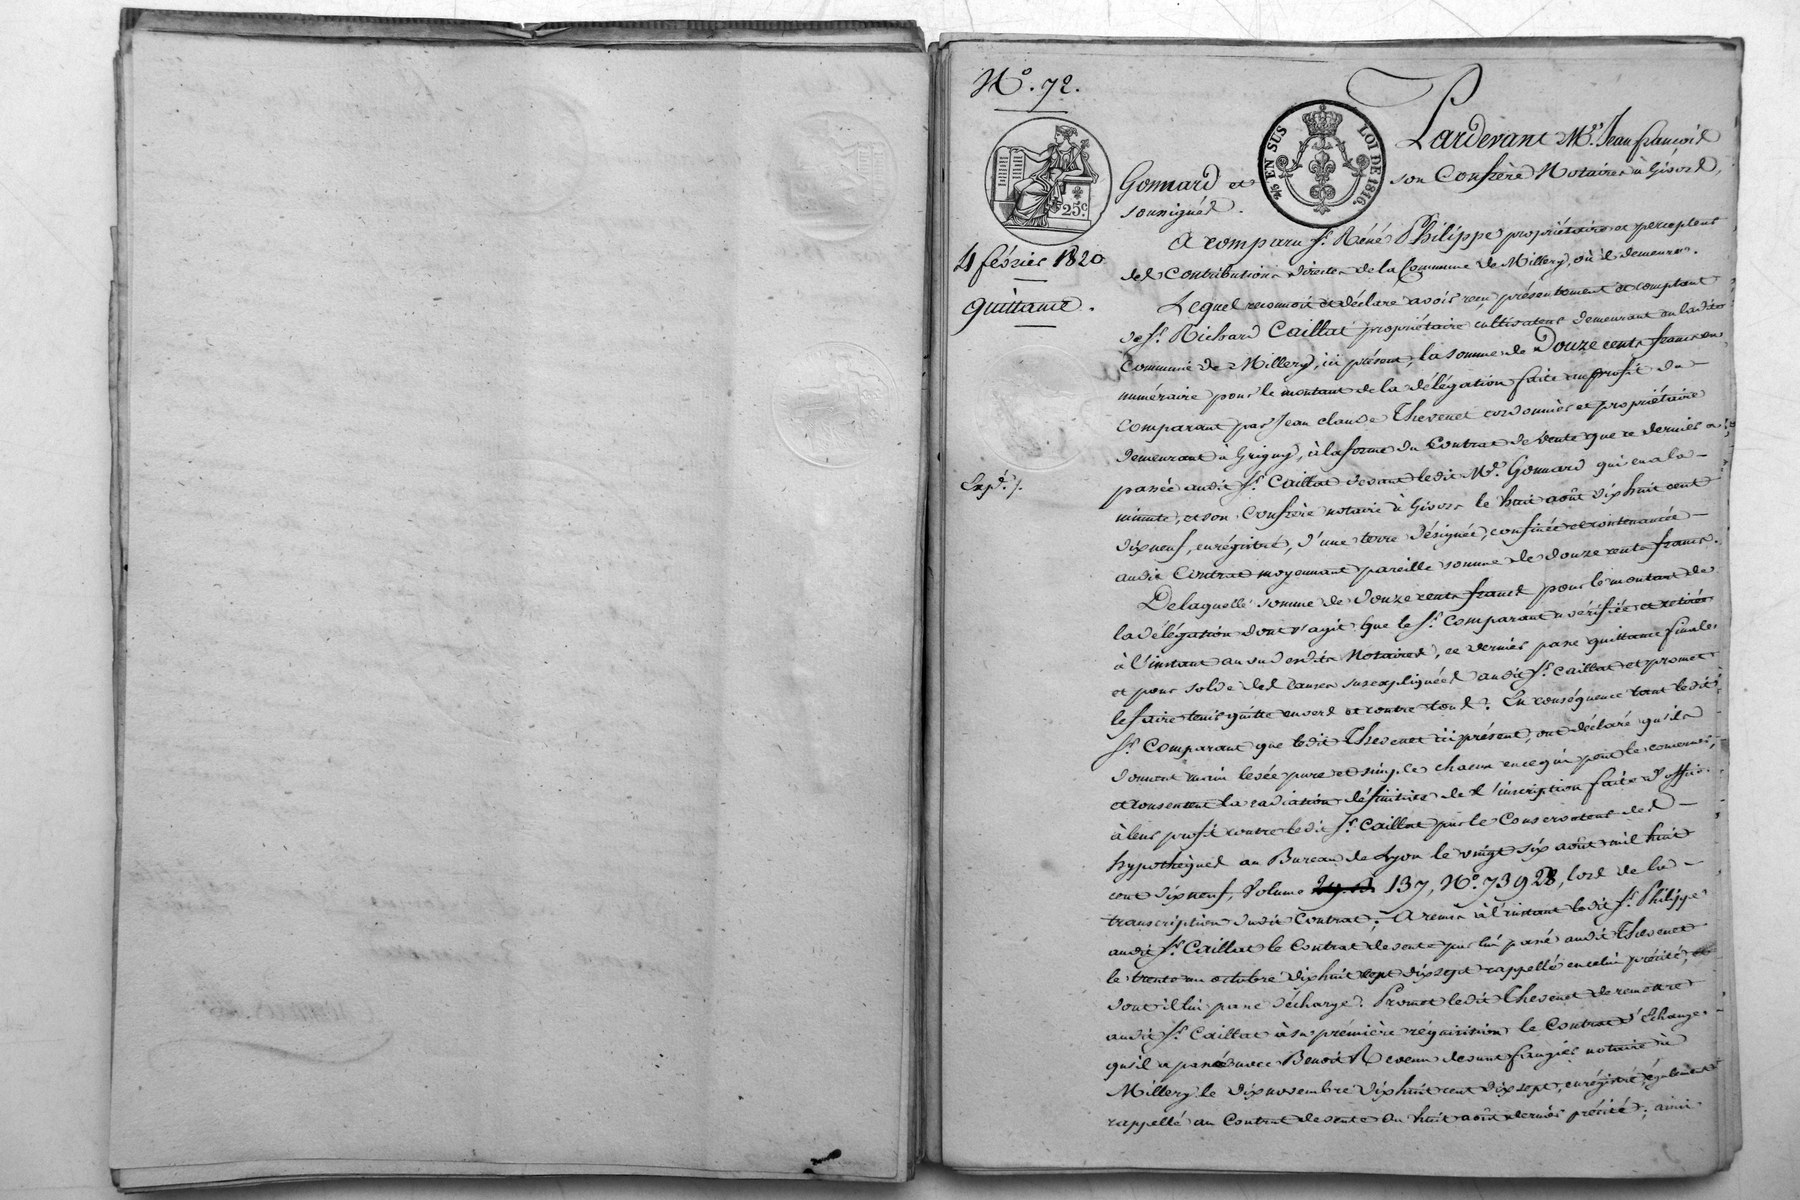 N.º 72.
25.c
4/10 EN SUS LOI DE 1816.
4 février 1820
quittance.
Expé. f.
Pardevant M.e Jean françois
Gonnard et son Confrère Notaires à Givors,
soussignés.
A comparu s.r Réné Philippe propriétaire et percepteur
des Contributions directes de la Commune de Millery, où il demeure.
Lequel reconnoit et déclare avoir reçu présentement et comptant
de s.r Richard Caillat propriétaire cultivateur demeurant en ladite
Commune de Millery, ici présent, la somme de Douze cents francs en
numéraire pour le montant de la délégation faite au profit du
Comparant par Jean claude Thevenet cordonnier et propriétaire
demeurant à Grigny, à la forme du Contrat de vente que ce dernier a
passée audit s.r Caillat devant ledit M.e Gonnard qui en a la
minute, et son Confrère notaire à Givors le huit août dix huit cent
dix neuf, enrégistré, d'une terre désignée, confinée et contenancée
audit Contrat moyennant pareille somme de douze cents francs.
De laquelle somme de douze cents francs pour le montant de
la délégation dont s'agit que le s.r Comparant a vérifiée et retirée
à l'instant au vu desdits Notaires, ce dernier passe quittance finale
et pour solde des causes susexpliquées audit s.r Caillat et promet
le faire tenir quitte envers et contre tous. En conséquence tant ledit
s.r Comparant que ledit Thevenet ici présent, ont déclaré qu'ils
donnent main levée pure et simple chacun en ce qui peut le concerner,
et consentent la radiation définitive de l'inscription faite d'office
à leur profit contre ledit s.r Caillat par le Conservateur des
hypothèques au Bureau de Lyon le vingt six août mil huit
cent dix neuf, Volume 137, N.º 73928, lors de la
transcription dudit Contrat; A remis à l'instant ledit s.r Philippe
audit s.r Caillat le Contrat de vente par lui passé audit Thevenet
le trente un octobre dix huit cent dix sept rappellé en celui précité, et
dont il lui passe décharge. Promet ledit Thevenet de remettre
audit s.r Caillat à sa première réquisition le Contrat d'Echange
qu'il a passé avec Benoit devant notaire à
Millery le dix novembre dix huit cent dix sept, enrégistré également
rappellé au Contrat de vente du huit août dernier précité; ainsi